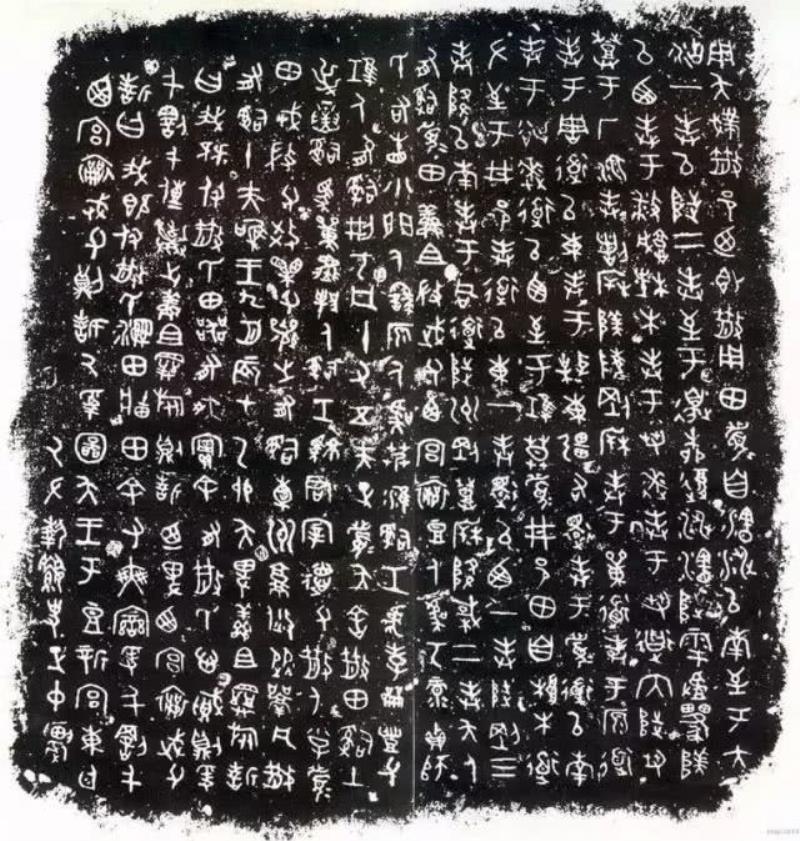 用夨散邑乃即散用田眉自瀗涉以南至于大
沽一奉以陟二奉至于邊柳復涉瀗陟雩
以西奉于城楮木奉于芻逨奉于芻道内陟芻
登于厂湶奉陵剛奉于道奉于原道
奉于周道以東奉于東彊右還奉于眉道以南
奉于逨道以西至于莫眉井邑田自木道
左至于井邑奉道以東一奉還以西一奉陟剛三
奉降以南奉于同道陟州剛登降棫二奉夨人
有𤔲眉田鮮且微武父西宮襄豆人虞丂彔貞師
氏右眚小門人繇原人虞艿淮𤔲工虎孝豐父
人有𤔲刑丂凡十又五夫正眉夨舍散田𤔲土
屰𤔲馬人𤔲工君宰德父散人小子眉
田戎微父效父襄之有𤔲橐州焂從凡散
有𤔲十夫唯王九月辰才乙卯夨卑鮮且旅誓
曰我既付散氏田器有爽實余有散氏心賊則爰
千罰千傳棄之鮮且旅則誓乃卑西宮襄武父
誓曰我既付散氏濕田田余又爽爰千罰千
西宮襄武父則誓厥受圖夨王于豆新宮東廷
厥左執史正中農